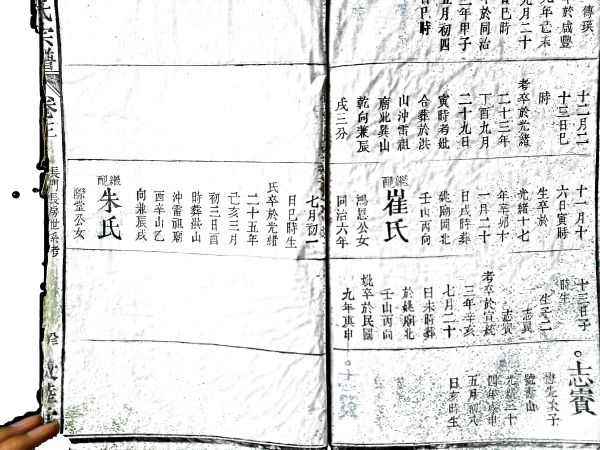 傳璵
年於咸豐
元年己未
九月二十
日巳時
卒於同治
三年甲子
五月初四
日巳時
十二月二
十三日巳
時
考卒於光緒
二十三年
丁酉九月
二十九日
寅時考妣
合葬於洪
山沖雷祖
廟北巽山
乾向兼辰
戌三分
繼配
朱氏
際堂公女
七月初一
日巳時生
氏卒於光緒
二十五年
己亥三月
初三日酉
時葬洪山
沖雷祖廟
酉辛山乙
向兼辰戌
十一月十
六日寅時
生卒於
光緒十七
年辛卯十
一月二十
日戌時葬
姚廟岡北
壬山丙向
繼配
崔氏
鴻恩公女
同治六年
十三日子
時生
生子二
志翼
志賓
考卒於宣統
三年辛亥
七月二十
日未時葬
於姚廟北
壬山丙向
妣卒於民國
九年庚申
志賓
懋先次子
號書山
光緒三十
四年戊申
五月初八
日亥時生
氏宗譜
卷三
長門長房世系考